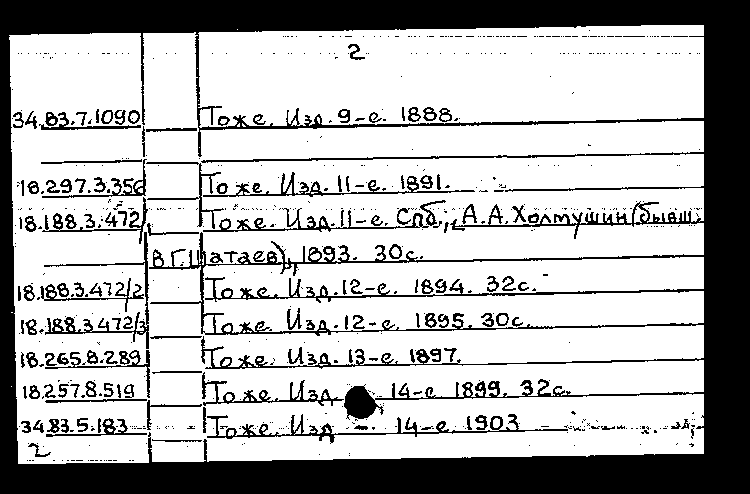 2
34.83.7.1090 То же. Изд. 9-е. 1888.
18.297.3.356 То же. Изд. 11-е. 1891.
18.188.3.472/1 То же. Изд. 11-е. Спб., "А.А. Холмушин (бывш.
В.Г. Шатаев)", 1893. 30с.
18.188.3.472/2 То же. Изд. 12-е. 1894. 32с.
18.188.3.472/3 То же. Изд. 12-е. 1895. 30с.
18.265.8.289 То же. Изд. 13-е. 1897.
18.257.8.519 То же. Изд. 14-е 1899. 32с.
34.83.5.183 То же. Изд - 14-е. 1903
2